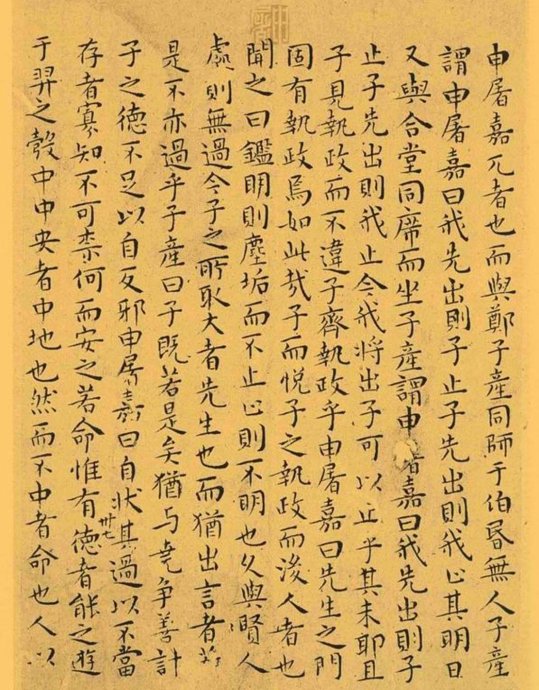 申屠嘉兀者也而與鄭子產同師于伯昬無人子產
謂申屠嘉曰我先出則子止子先出則我止其明日
又與合堂同席而坐子產謂申屠嘉曰我先出則子
止子先出則我止今我將出子可以止乎其未耶且
子見執政而不違子齊執政乎申屠嘉曰先生之門
固有執政焉如此哉子而悅子之執政而後人者也
聞之曰鑑明則塵垢而不止止則不明也久與賢人
處則無過今子之所取大者先生也而猶出言者若
是不亦過乎子產曰子既若是矣猶与堯争善計
子之德不足以自反邪申屠嘉曰自狀其過以不當
存者寡知不可柰何而安之若命惟有德者能之遊
于羿之彀中中央者中地也然而不中者命也人以